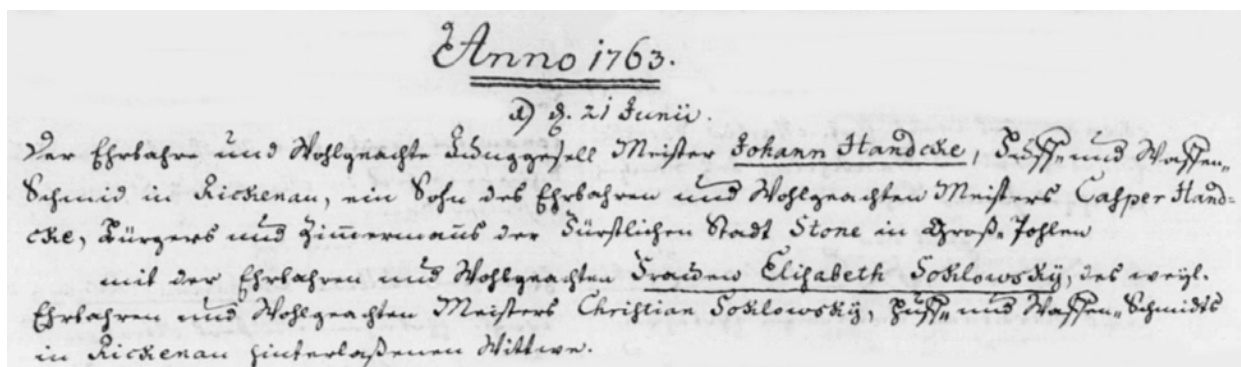 Anno 1763.
d. 21 Junii.
Der Ehrbahre und Wohlgeachte Junggesell Meister Johann Handcke, Huff- und Waffen-
Schmid in Rickenau, ein Sohn des Ehrbahren und Wohlgeachten Meisters Casper Hand-
cke, Bürgers und Zim̃ermañs der Fürstlichen Stadt Stone in Groß-Pohlen
mit der Ehrbahren und Wohlgeachten Frauen Elisabeth Sokilowsky, des weyl.
Ehrbahren und Wohlgeachten Meisters Christian Sokilowsky, Huff- und Waffen-Schmidts
in Rickenau hinterlaßenen Wittwe.